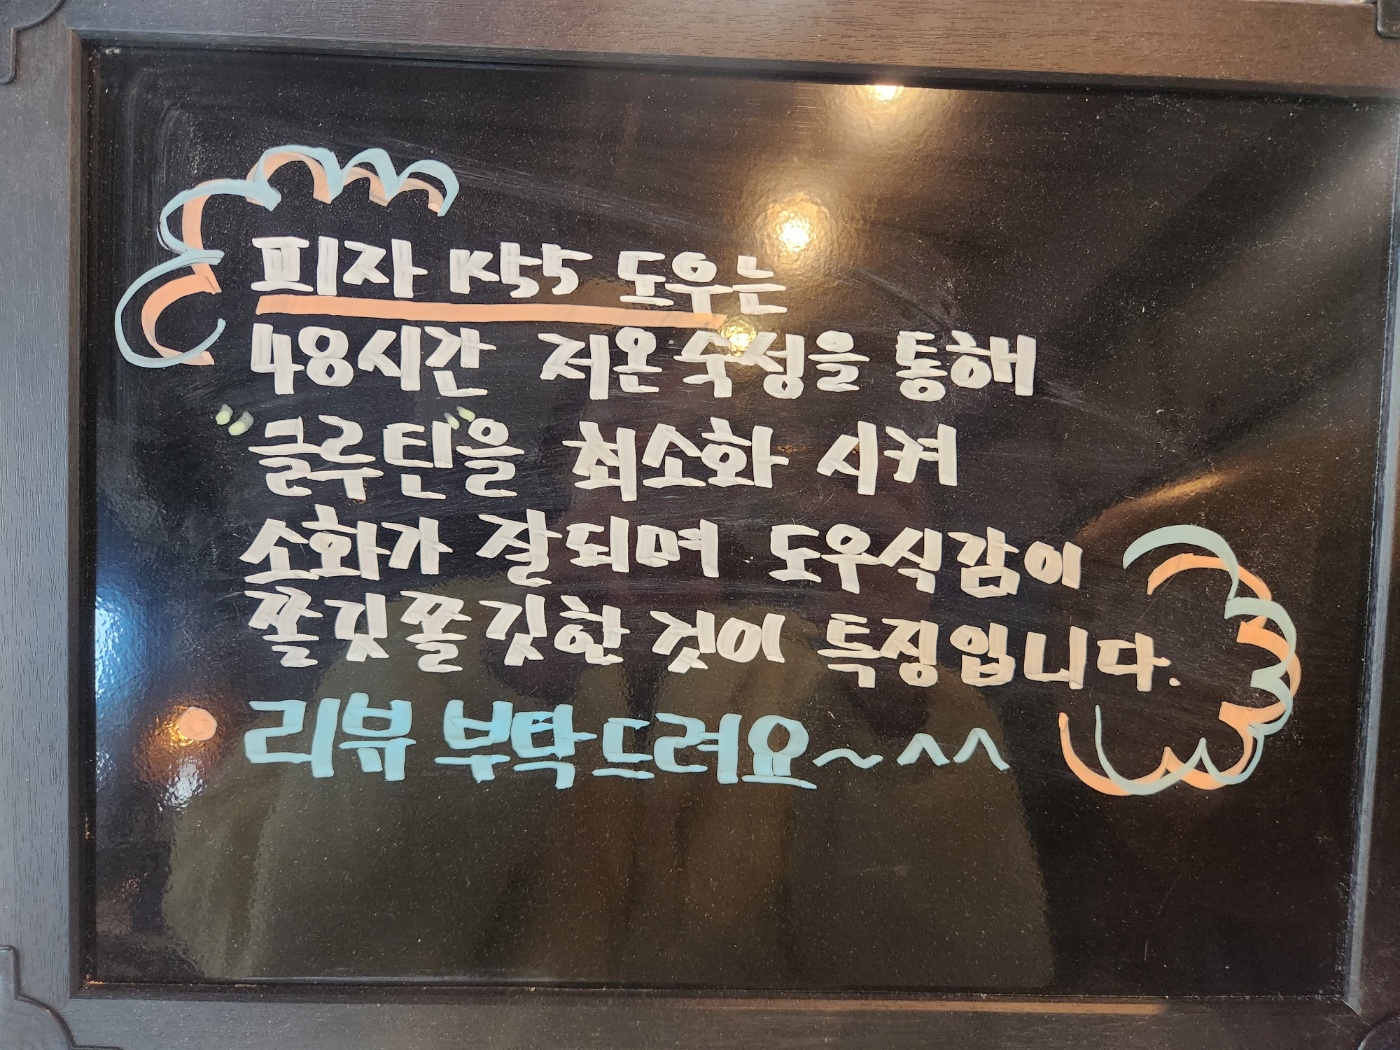 피자 K55 도우는
48시간 저온숙성을 통해
"글루틴"을 최소화 시켜
소화가 잘되며 도우식감이
쫄깃쫄깃한 것이 특징입니다.
리뷰 부탁드려요~^^